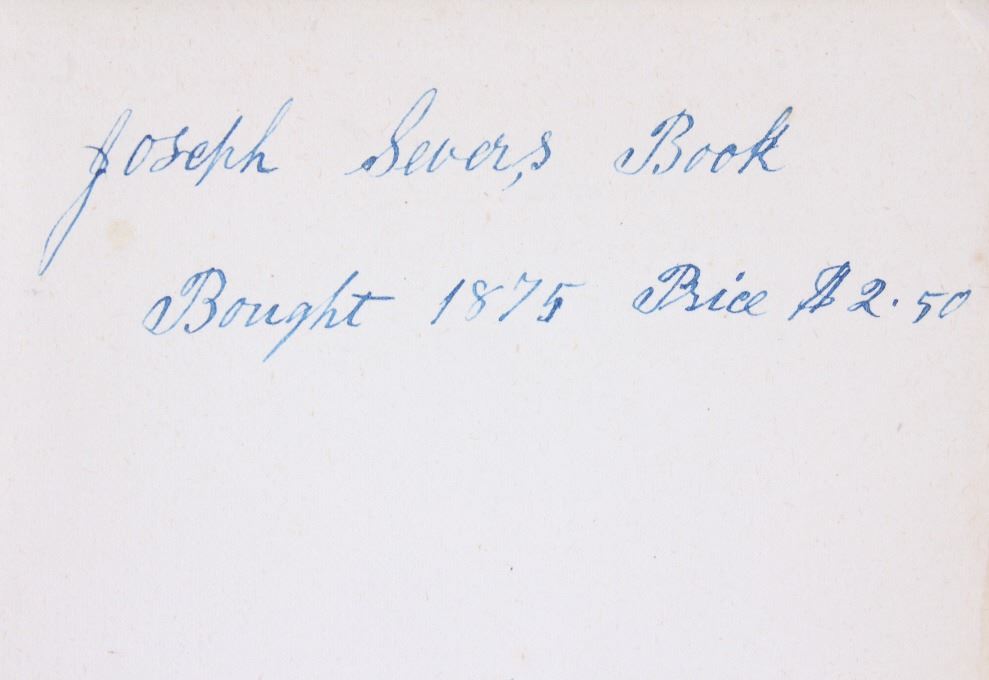 Joseph Sever,s Book
Bought 1875 Price $2.50